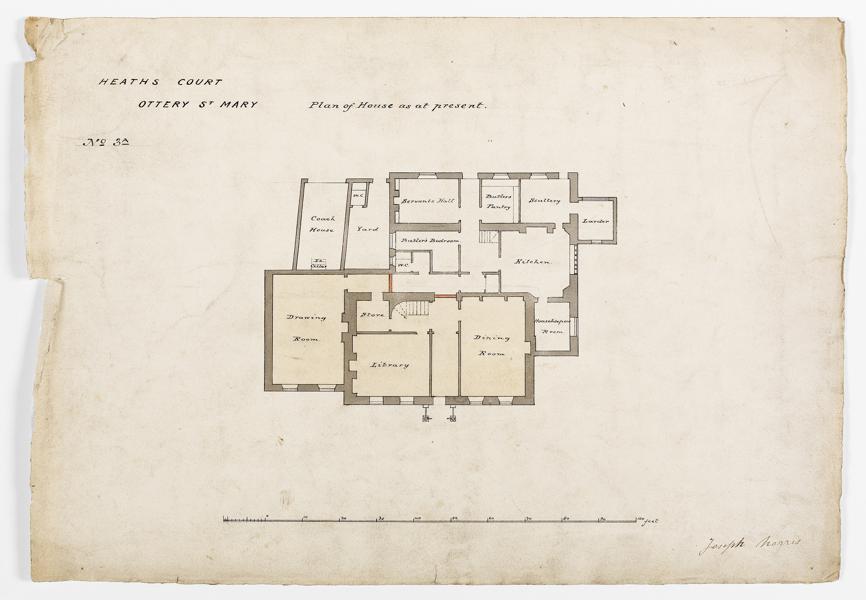 HEATHS COURT
OTTERY ST MARY
Plan of House as at present.
No 3A
W.C.
Servants Hall
Butlers
Pantry
Scullery
Larder
Coach
House
Yard
Butlers Bedroom
W.C.
Kitchen
To
Cellar
Drawing
Room
Store
Library
Dining
Room
Housekeepers
Room
10
20
30
40
50
60
70
80
90
100 feet
Joseph Morris